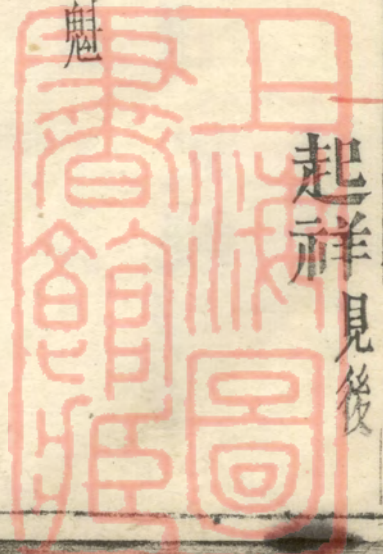 起祥見後
魁
上海圖
書館藏